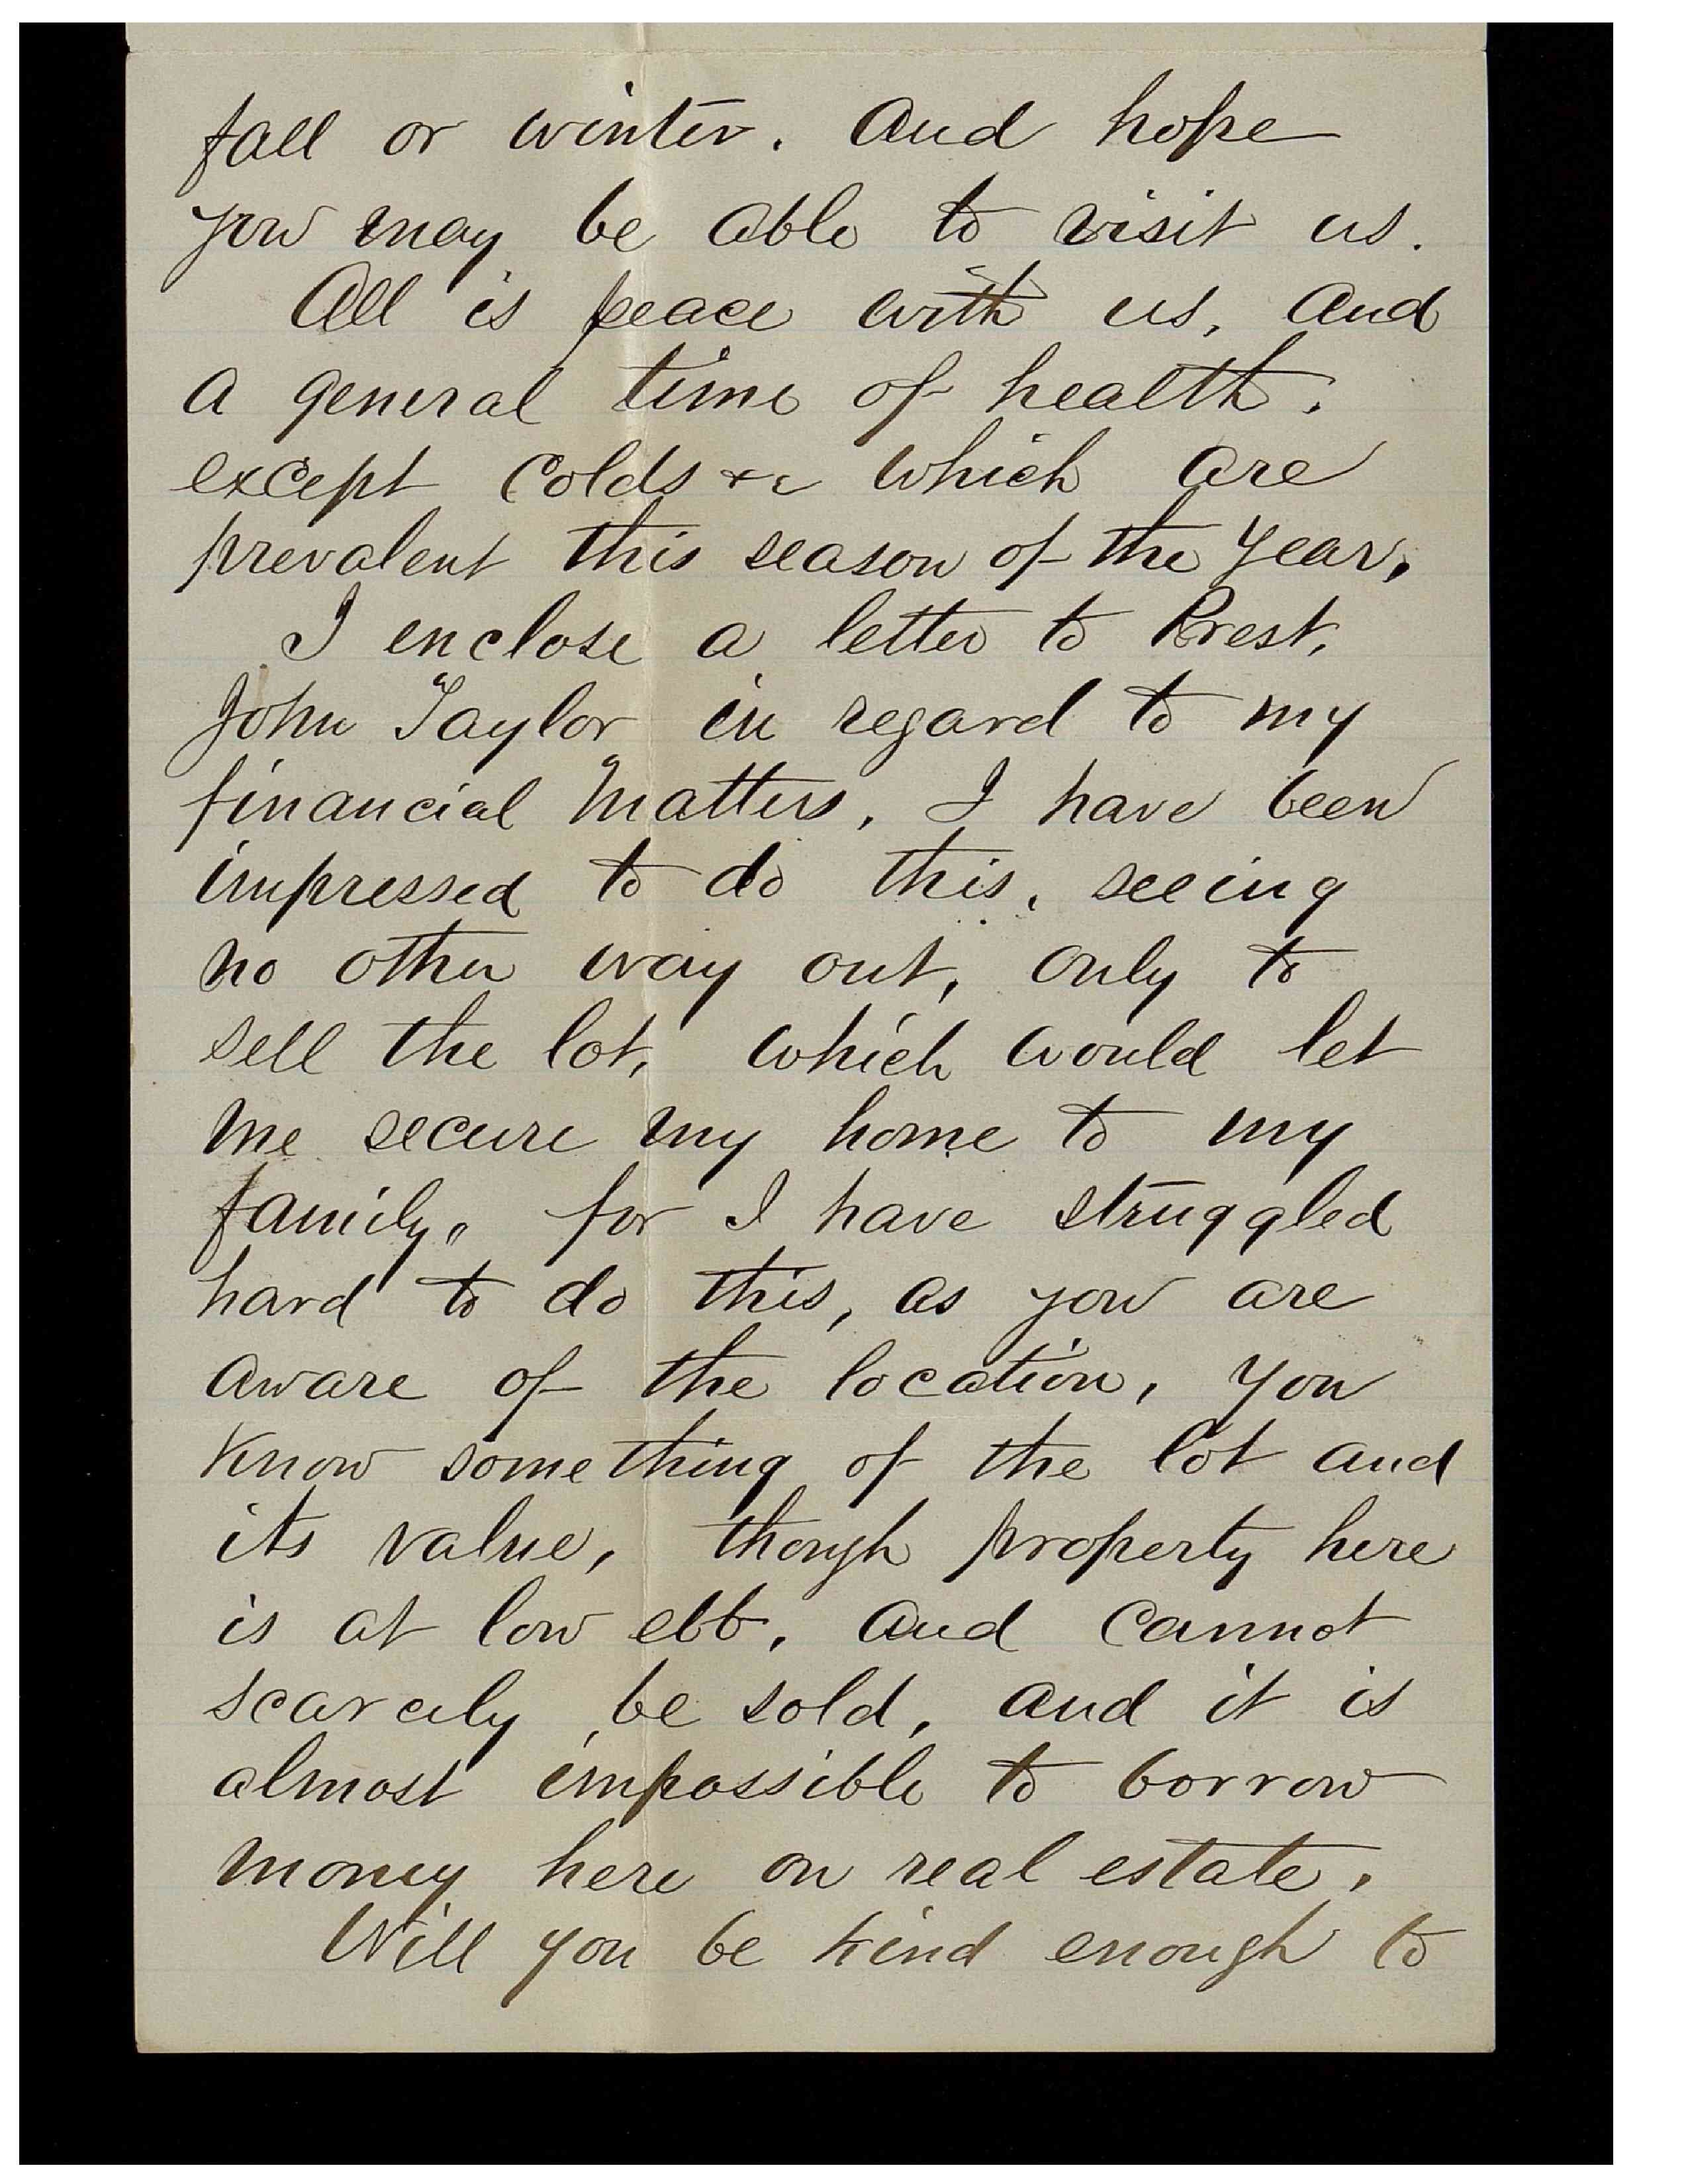 fall or winter. And hope
you may be able to visit us.
All is peace with us, and
a general time of health.
except Colds &c which are
prevalent this season of the year.
I enclose a letter to Prest.
John Taylor in regard to my
financial matters, I have been
impressed to do this, seeing
no other way out, only to
sell the lot, which would let
me secure my home to my
family, for I have struggled
hard to do this, as you are
aware of the location, You
know something of the lot and
its value, though property here
is at low ebb, and cannot
scarcely be sold, and it is
almost impossible to borrow
money here on real estate.
Will you be kind enough to